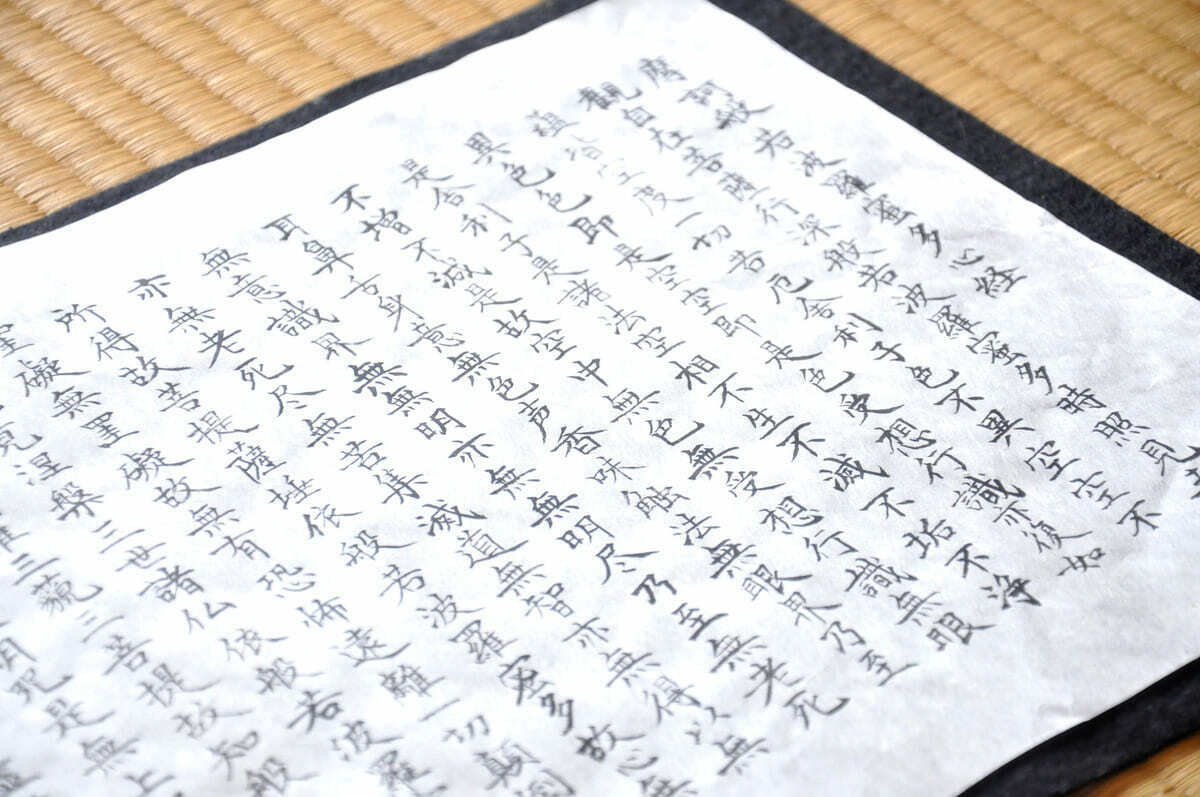 摩訶般若波羅蜜多心経
觀自在菩薩行深般若波羅蜜多時照見
蘊皆空度一切苦厄舎利子色不異空空不
異色色即是空空即是色受想行識亦復如
是舎利子是諸法空相不生不滅不垢不浄
不増不減是故空中無色無受想行識無眼
耳鼻舌身意無色声香味触法無眼界乃至
無意識界無無明亦無無明尽乃至無老死
亦無老死尽無苦集滅道無智亦無得以無
所得故菩提薩埵依般若波羅蜜多故心無
罣礙無罣礙故無有恐怖遠離一切顛倒
竟涅槃三世諸仏依般若波羅
三藐三菩提故知般
明咒是無上